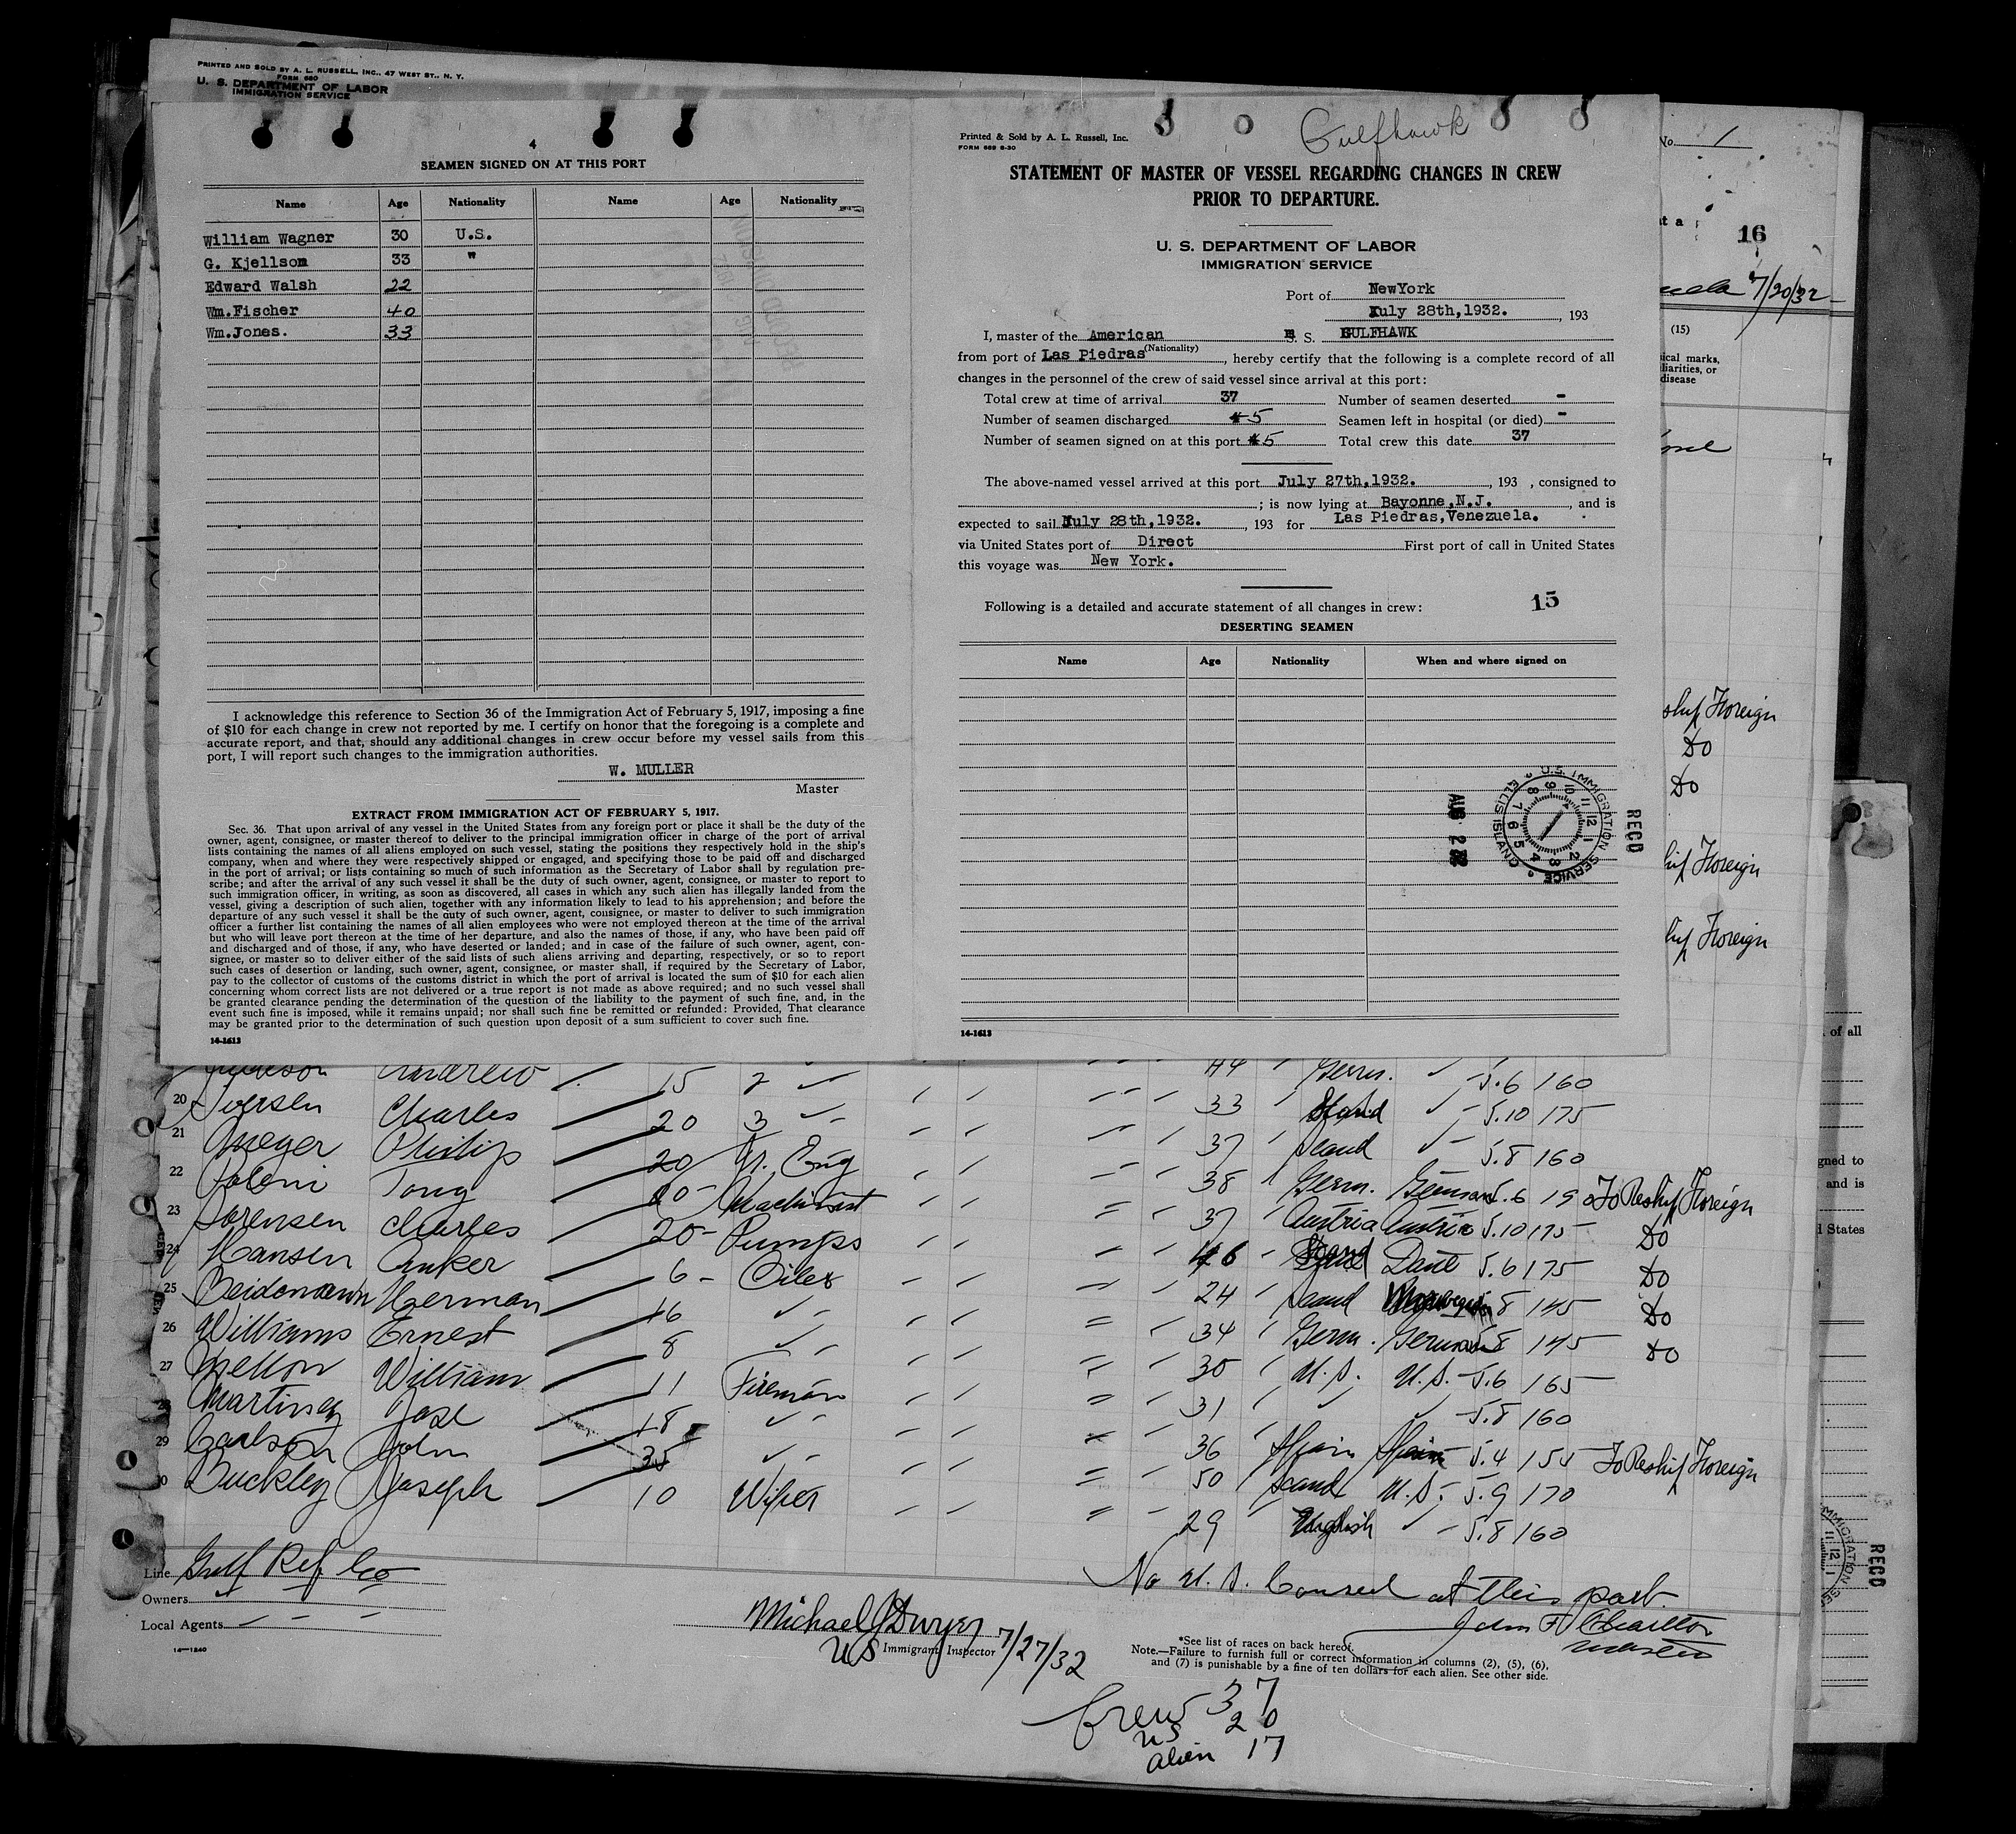 PRINTED AND SOLD BY A. L. RUSSELL, INC., 47 WEST ST., N. Y.
FORM 680
U. S. DEPARTMENT OF LABOR
IMMIGRATION SERVICE
4
SEAMEN SIGNED ON AT THIS PORT
Name Age Nationality Name Age Nationality
William Wagner 30 U.S.
G. Kjellsom 33 "
Edward Walsh 22
Wm.Fischer 40
Wm.Jones. 33
I acknowledge this reference to Section 36 of the Immigration Act of February 5, 1917, imposing a fine
of $10 for each change in crew not reported by me. I certify on honor that the foregoing is a complete and
accurate report, and that, should any additional changes in crew occur before my vessel sails from this
port, I will report such changes to the immigration authorities.
W. MULLER
Master
EXTRACT FROM IMMIGRATION ACT OF FEBRUARY 5, 1917.
Sec. 36. That upon arrival of any vessel in the United States from any foreign port or place it shall be the duty of the
owner, agent, consignee, or master thereof to deliver to the principal immigration officer in charge of the port of arrival
lists containing the names of all aliens employed on such vessel, stating the positions they respectively hold in the ship's
company, when and where they were respectively shipped or engaged, and specifying those to be paid off and discharged
in the port of arrival; or lists containing so much of such information as the Secretary of Labor shall by regulation pre-
scribe; and after the arrival of any such vessel it shall be the duty of such owner, agent, consignee, or master to report to
such immigration officer, in writing, as soon as discovered, all cases in which any such alien has illegally landed from the
vessel, giving a description of such alien, together with any information likely to lead to his apprehension; and before the
departure of any such vessel it shall be the duty of such owner, agent, consignee, or master to deliver to such immigration
officer a further list containing the names of all alien employees who were not employed thereon at the time of the arrival
but who will leave port thereon at the time of her departure, and also the names of those, if any, who have been paid off
and discharged and of those, if any, who have deserted or landed; and in case of the failure of such owner, agent, con-
signee, or master so to deliver either of the said lists of such aliens arriving and departing, respectively, or so to report
such cases of desertion or landing, such owner, agent, consignee, or master shall, if required by the Secretary of Labor,
pay to the collector of customs of the customs district in which the port of arrival is located the sum of $10 for each alien
concerning whom correct lists are not delivered or a true report is not made as above required; and no such vessel shall
be granted clearance pending the determination of the question of the liability to the payment of such fine, and, in the
event such fine is imposed, while it remains unpaid; nor shall such fine be remitted or refunded: Provided, That clearance
may be granted prior to the determination of such question upon deposit of a sum sufficient to cover such fine.
14-1613
Printed & Sold by A. L. Russell, Inc.
FORM 689 8-30
Gulfhawk
STATEMENT OF MASTER OF VESSEL REGARDING CHANGES IN CREW
PRIOR TO DEPARTURE.
U. S. DEPARTMENT OF LABOR
IMMIGRATION SERVICE
Port of NewYork
July 28th,1932. , 193
I, master of the American S. S. GULFHAWK
(Nationality)
from port of Las Piedras , hereby certify that the following is a complete record of all
changes in the personnel of the crew of said vessel since arrival at this port:
Total crew at time of arrival 37 Number of seamen deserted -
Number of seamen discharged 5 Seamen left in hospital (or died) -
Number of seamen signed on at this port 5 Total crew this date 37
The above-named vessel arrived at this port July 27th,1932. , 193 , consigned to
; is now lying at Bayonne,N.J. , and is
expected to sail July 28th,1932. , 193 for Las Piedras,Venezuela.
via United States port of Direct First port of call in United States
this voyage was New York.
15
Following is a detailed and accurate statement of all changes in crew:
DESERTING SEAMEN
Name Age Nationality When and where signed on
U.S. IMMIGRATION SERVICE ELLIS ISLAND
RECD
AUG 2 32
14-1613
No. 1
16
7/20/32
(15)
ical marks,
liarities, or
disease
ship Foreign
Do
Do
Foreign
Foreign
of all
gned to
and is
d States
Andrew 15 2 44 Germ. 5.6 160
20 Iversen Charles 20 3 33 Scand 5.10 175
21 Meyer Philip 20 Jr. Eng 37 Scand 5.8 160
22 Tony Machinist 38 Germ. German 5.6 To Reship Foreign
23 Sorensen Charles 20 Pumps 37 Austria Austria 5.10 175 Do
24 Hansen Anker 6 Oiler 46 Scand Dane 5.6 175 Do
25 Herman 16 24 Scand Norwegian 8 145 Do
26 Williams Ernest 8 34 Germ. German 5.8 145 Do
27 Mellon William 11 Fireman 30 U.S. U.S. 5.6 165
28 Martinez Jose 18 31 5.8 160
29 Carlson John 25 36 Spain Spain 5.4 155 To Reship Foreign
Buckley Joseph 10 Wiper 50 Scand U.S. 5.9 170
29 English 5.8 160
Line Gulf Ref Co
Owners
Local Agents
14—1240
No U.S. Consul at this port.
John F Charlton
Master
Michael J Dwyer 7/27/32
US Immigrant Inspector
*See list of races on back hereof.
Note.—Failure to furnish full or correct information in columns (2), (5), (6),
and (7) is punishable by a fine of ten dollars for each alien. See other side.
Crew 37
US 20
Alien 17
RECD